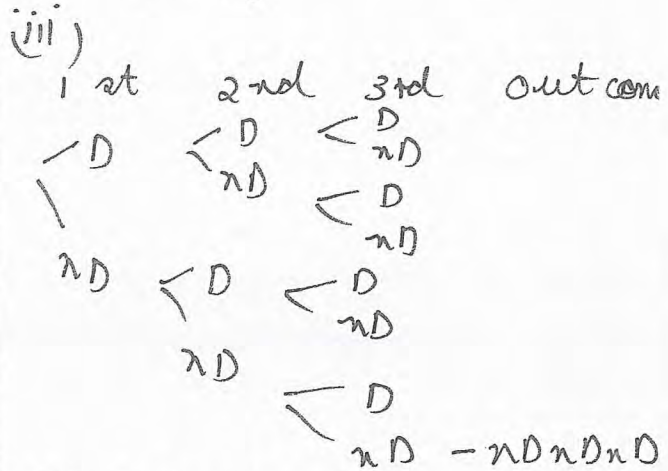 (iii)
1 st 2nd 3rd out com
D D D
nD nD
D
nD
nD D D
nD
nD
D
nD - nDnDnD